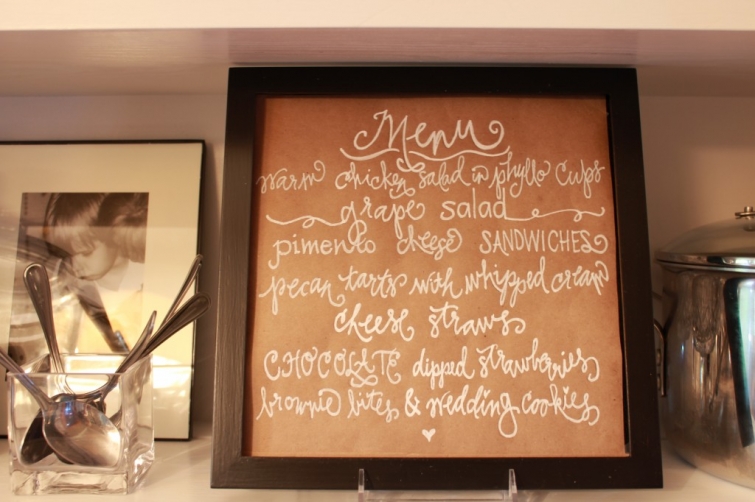 Menu
warm chicken salad in phyllo Cups
grape salad
pimento cheese SANDWICHES
pecan tarts with whipped cream
cheese straws
CHOCOLATE dipped strawberries
brownie bites & wedding cookies